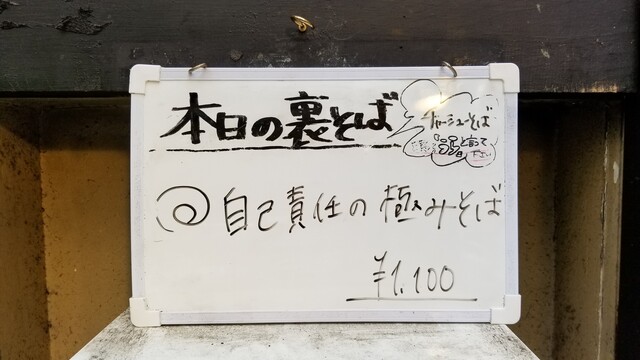 本日の裏そば
チャーシューそば
と言って
下さい
自己責任の極みそば
¥1,100